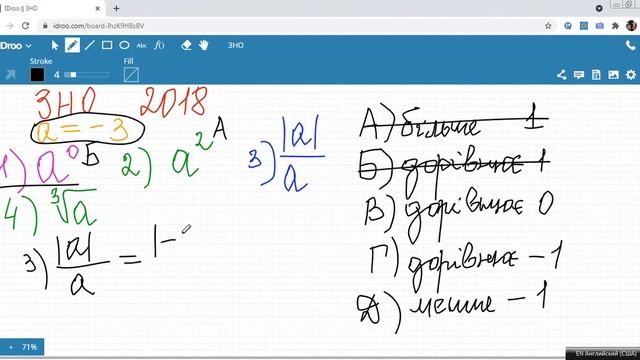 IDroo || ЗНО
idroo.com/board-IhzK9HBsBV
IDroo
ЗНО
Stroke
Fill
4
ЗНО 2018
a = -3
1) a⁰ Б 2) a² А 3) |a|/a
4) ∛a
3) |a|/a = |-
А) більше 1
Б) дорівнює 1
В) дорівнює 0
Г) дорівнює -1
Д) менше -1
71%
EN Английский (США)